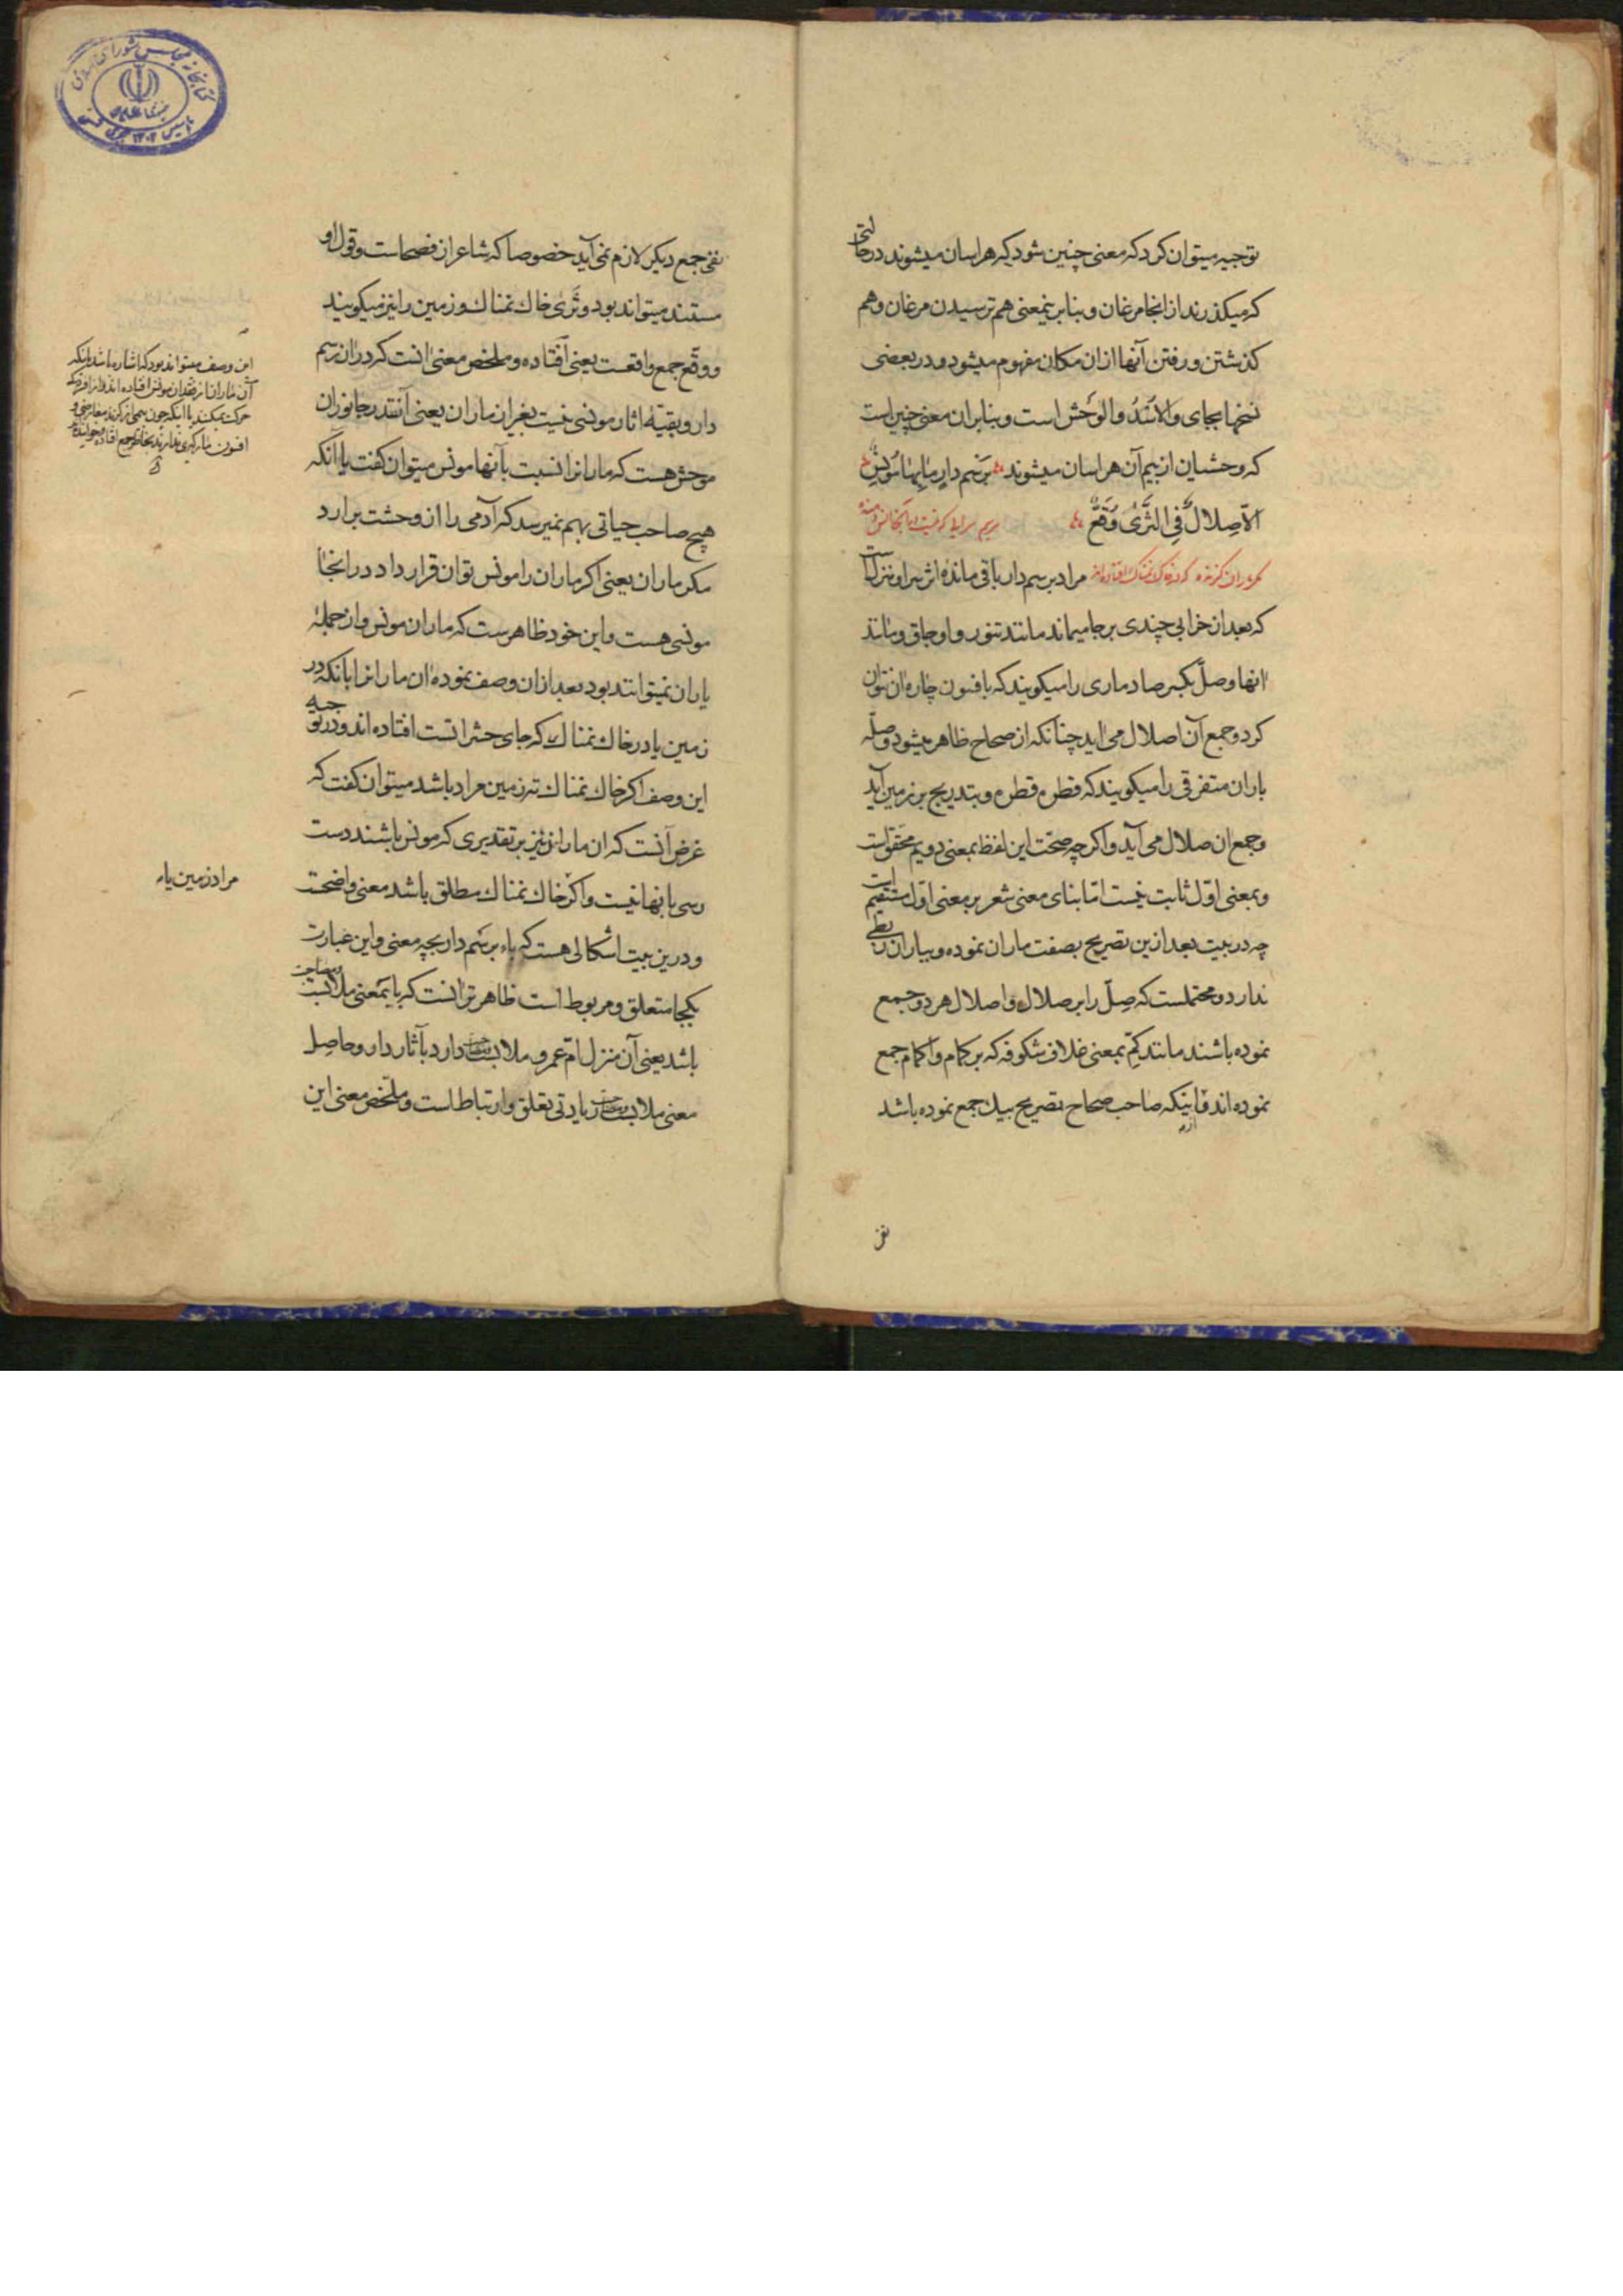 توجیه میتوان کرد که معنی چنین شود که هراسان میشوند در حالتی
که میگذرند از انجا مرغان و بنابرینمعنی هم ترسیدن مرغان و هم
کذشتن و رفتن آنها ازان مکان مفهوم میشود و در بعضی
نسخها بجای والاسد والوحش است و بنابران معنی چنین است
که وحشیان از بیم آن هراسان میشوند برسم دار ما بها مونس
الا صلال فی الثری وقع
مکر ماران کزنده که در خاک نمناک افتاده اند مراد برسم دار باقی مانده اثر سرا و منزلست
که بعد ان خرابی چندی بر جا میماند مانند تنور و اوجاق و مانند
انها و صل بکسر صاد ماری را میکویند که بافسون چاره ان نتوان
کرد و جمع آن اصلال می اید چنانکه از صحاح ظاهر میشود و صله
باران متفرقی را میکویند که قطره قطره و بتدریج بر زمین آید
و جمع ان صلال می آید و اکر چه صحت این لفظ بمعنی دویم محقق است
و بمعنی اول ثابت نیست اما بنای معنی شعر بر معنی اول مستقیم است
چه در بیت بعد ازین تصریح بصفت ماران نموده و بباران ربطی
ندارد و محتملست که صل را بر صلال و اصلال هر دو جمع
نموده باشند مانند کم بمعنی غلاف شکوفه که بر کمام و اکمام جمع
نموده اند و اینکه صاحب صحاح تصریح بیک جمع نموده باشد ازو
نفی
نفی جمع دیکر لازم نمی آید خصوصا که شاعر ان فصحاست و قول او
مستند میتواند بود و ثری خاک نمناک و زمین را نیز میکویند
و وقع جمع واقعست یعنی افتاده و ملخص معنی انست که دران رسم
دار و بقیه اثار مونسی نیست بغیر ان ماران یعنی آنقدر جانوران
موحش هست که مارانرا نسبت بآنها مونس میتوان کفت یا آنکه
هیچ صاحب حیاتی بهم نمیرسد که آدمی را از وحشت برارد
مکر ماران یعنی اکر ماران را مونس توان قرار داد در انجا
مونسی هست و این خود ظاهرست که ماران مونس و از جمله
یاران نمیتوانند بود بعد ازان وصف نموده ان مارانرا بانکه در
زمین یا در خاک نمناک که جای حشراتست افتاده اند و در توجیه
این وصف اکر خاک نمناک تر زمین مراد باشد میتوان کفت که
غرض آنست که ان ماران نیز بر تقدیری که مونس باشند دست
رسی بانها نیست و اکر خاک نمناک مطلق باشد معنی واضحست
و درین بیت اشکالی هست که باء برسم دار بچه معنی و این عبارت
بکجا متعلق و مربوط است ظاهر تر انست که با بمعنی ملابست و مصاحبت
باشد یعنی آن منزل ام عمرو ملابست دارد بآثار دار و حاصل
معنی ملابست زیادتی تعلق و ارتباط است و ملخص معنی این
این وصف میتواند بود که اشاره باشد باینکه
آن ماران از فقدان مونس افتاده اند و از
حرکت نمیکنند یا اینکه چون بیمی از کزند معارضی و
افسون مارکیری ندارند بخاطر جمع افتاده و خوابیده اند
مراد زمین یا